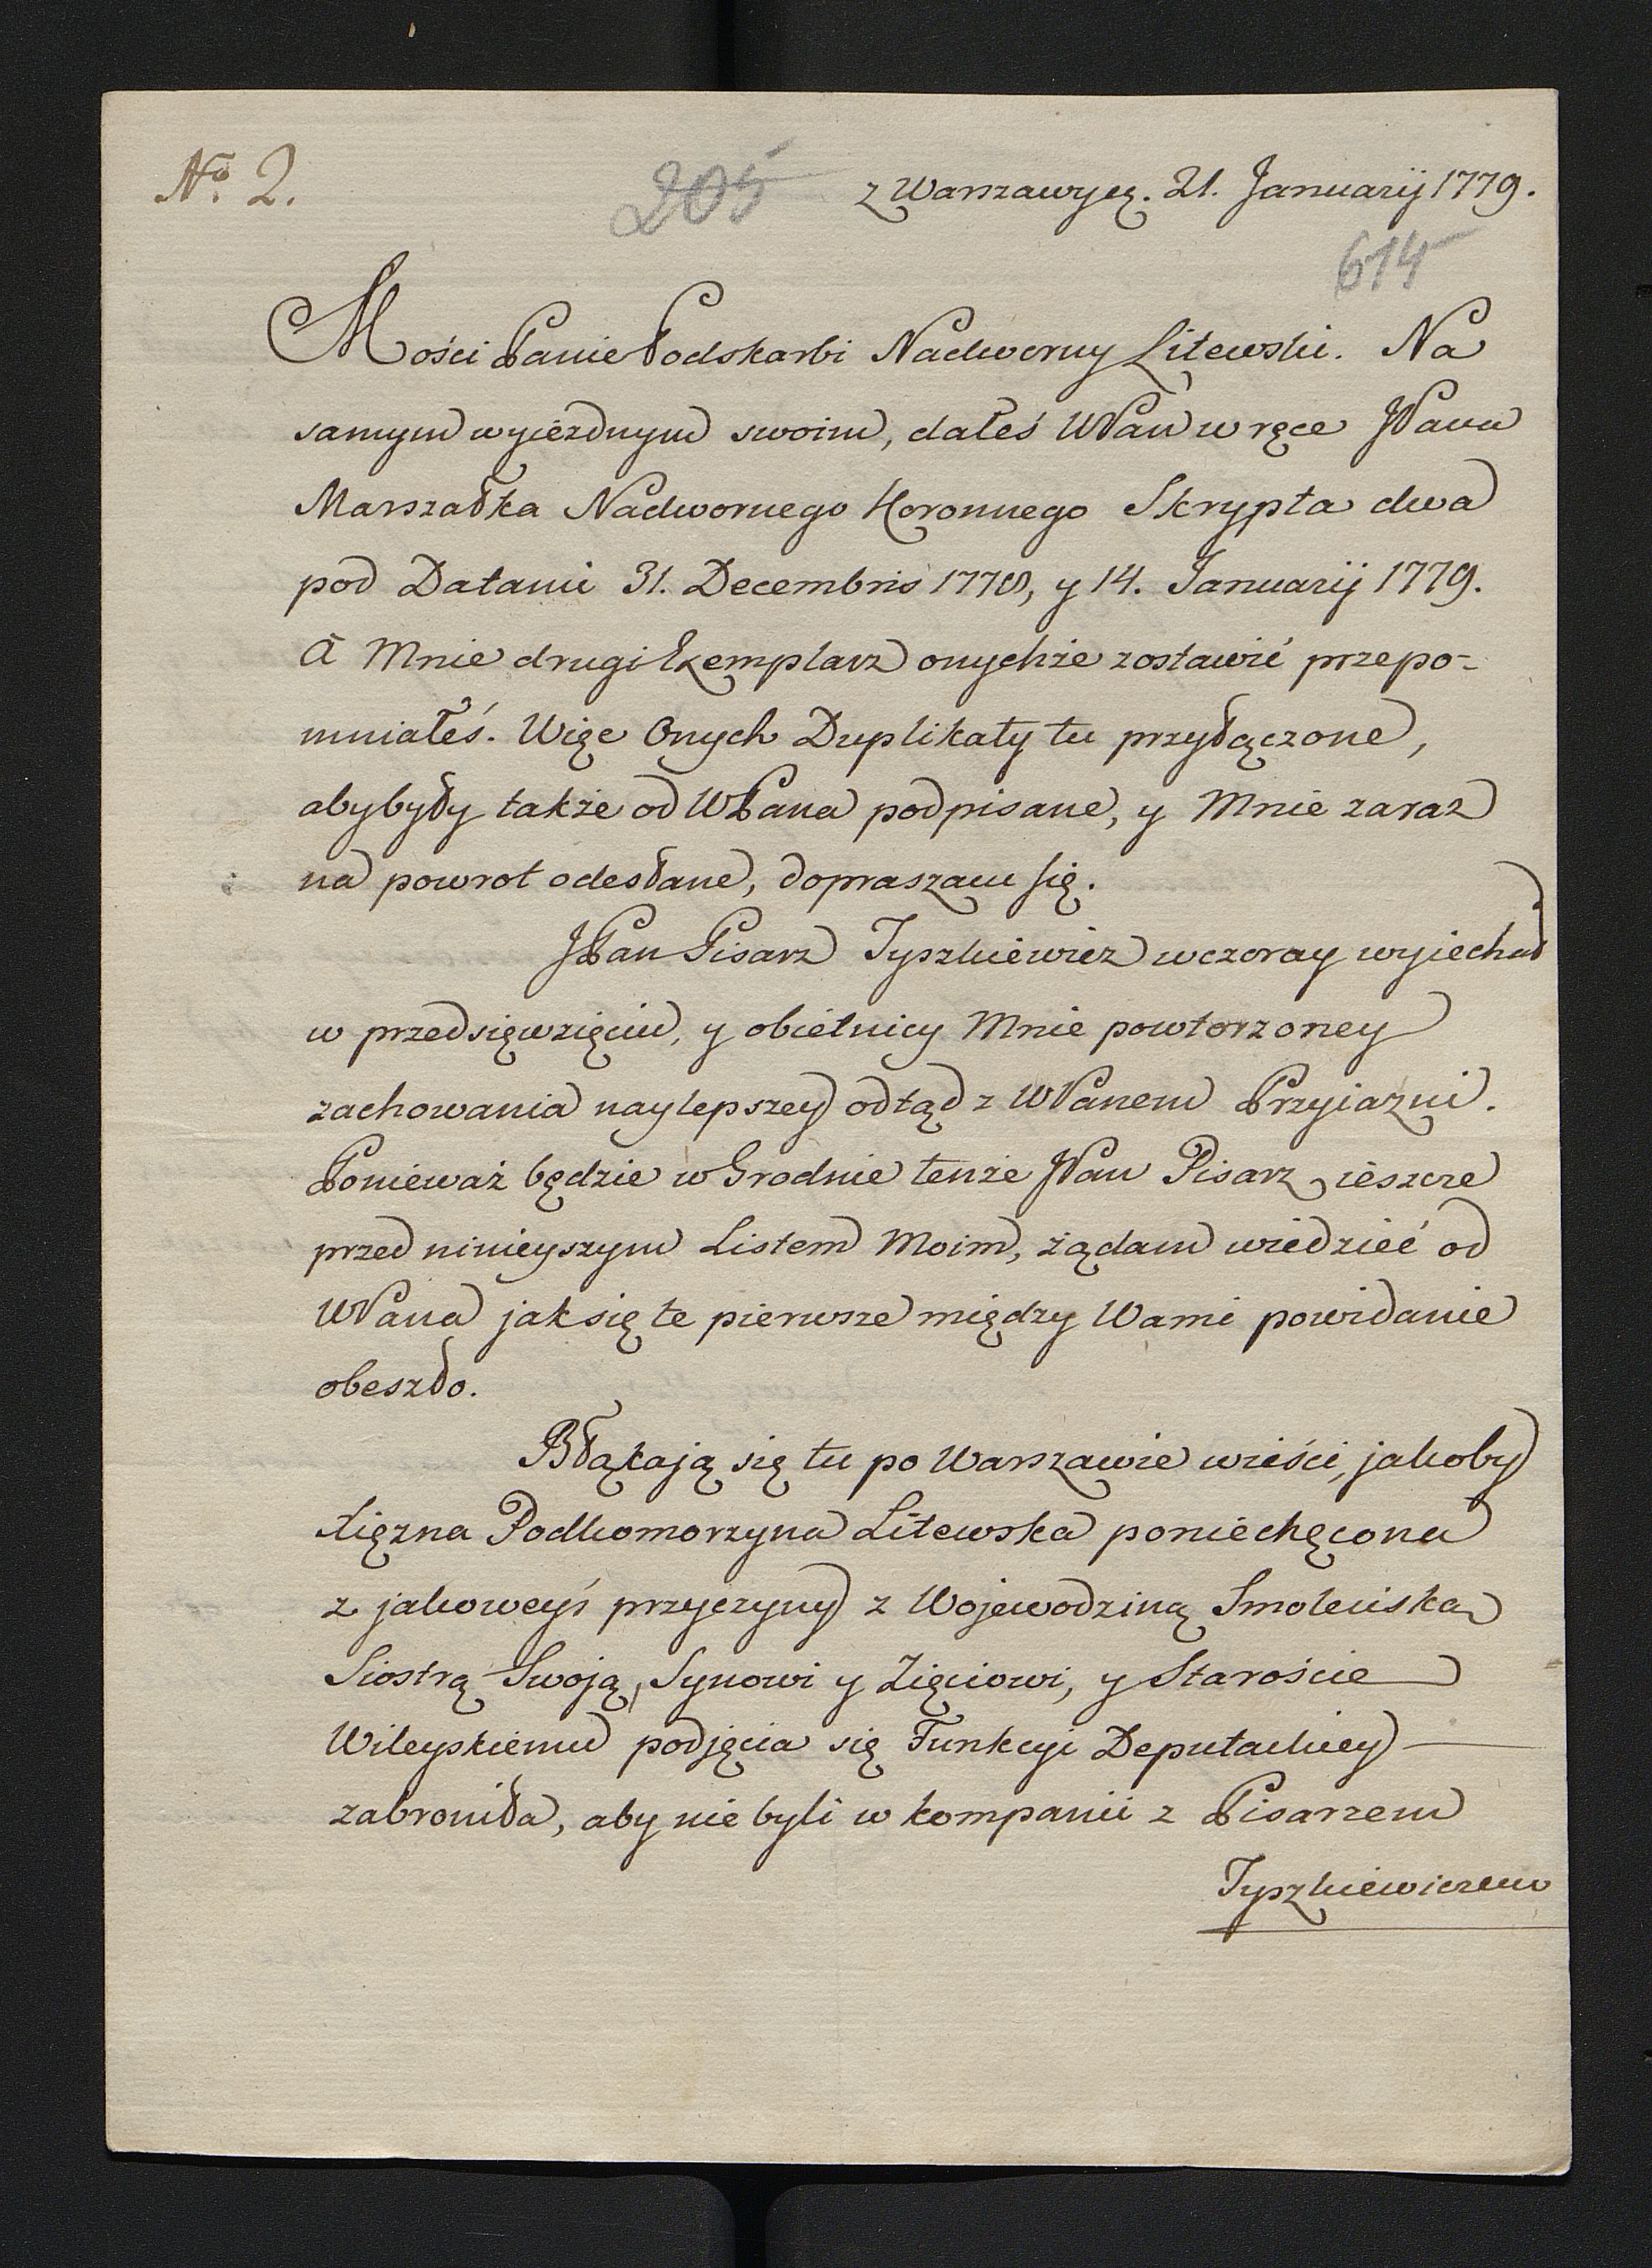 No. 2.
205
z Warszawy. 21. Januarij 1779.
614
Mości Panie Podskarbi Nadworny Litewski. Na
samym wyiezdnym swoim, dałeś WPan w ręce JPana
Marszałka Nadwornego Koronnego Skrypta dwa
pod Datami 31. Decembris 1778, y 14. Januarij 1779.
A Mnie drugi Exemplarz onychże zostawić przepo-
mniałeś. Więc Onych Duplikaty tu przyłączone,
aby były także od WPana podpisane, y Mnie zaraz
na powrot odesłane, dopraszam się.
JPan Pisarz Tyszkiewicz wczoray wyiechał
w przedsięwzięciu, y obietnicy Mnie powtorzoney
zachowania naylepszey odtąd z WPanem Przyiazni.
Ponieważ będzie w Grodnie tenże JPan Pisarz ieszcze
przed ninieyszym Listem Moim, żądam wiedzieć od
WPana jak się te pierwsze między Wami powidanie
obeszło.
Błąkają się tu po Warszawie wieści, jakoby
Xiężna Podkomorzyna Litewska poniechęcona
z jakoweyś przyczyny z Wojewodziną Smoleńską
Siostrą Swoją, Synowi y Zięciowi, y Staroście
Wileyskiemu podjęcia się Funkcyi Deputackiey
zabroniła, aby nie byli w kompanii z Pisarzem
Tyszkiewiczem